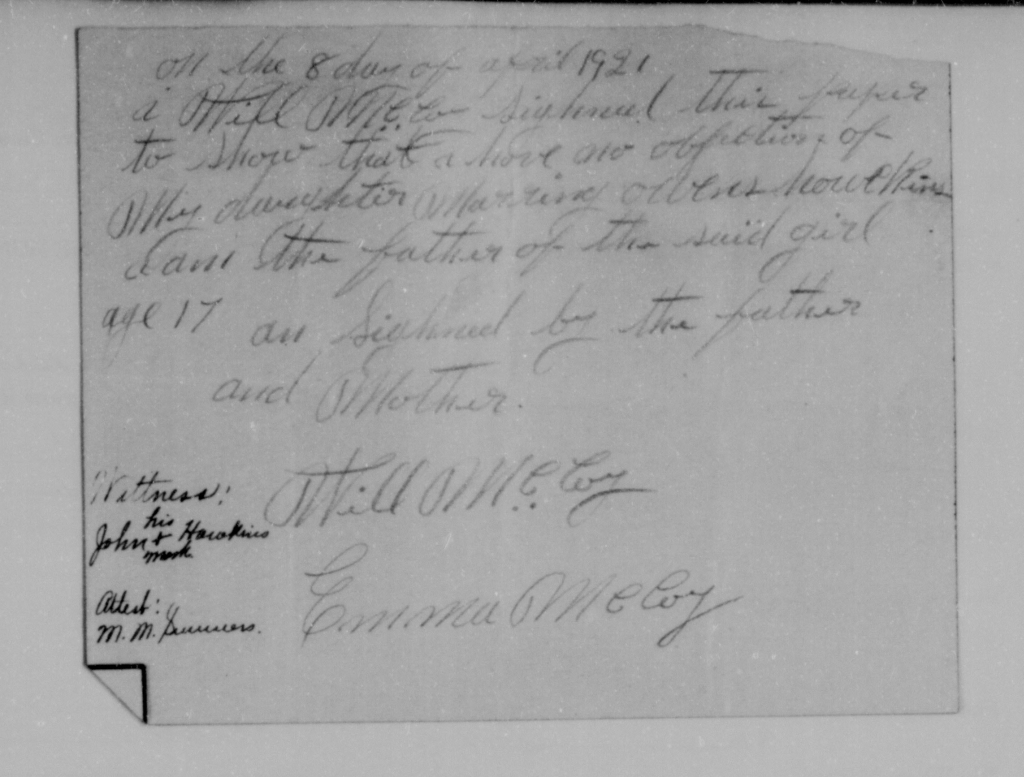 on the 8 day of april 1921
i Will McCo Sighned this paper
to show that i have no obfection of
My daughter Marring owens howekins
i am the father of the said girl
age 17 an Sighned by the father
and Mother.
Will McCoy
Emma McCoy
Wittness:
his
John + Hawkins
mark
Attest:
M. M. Summers.